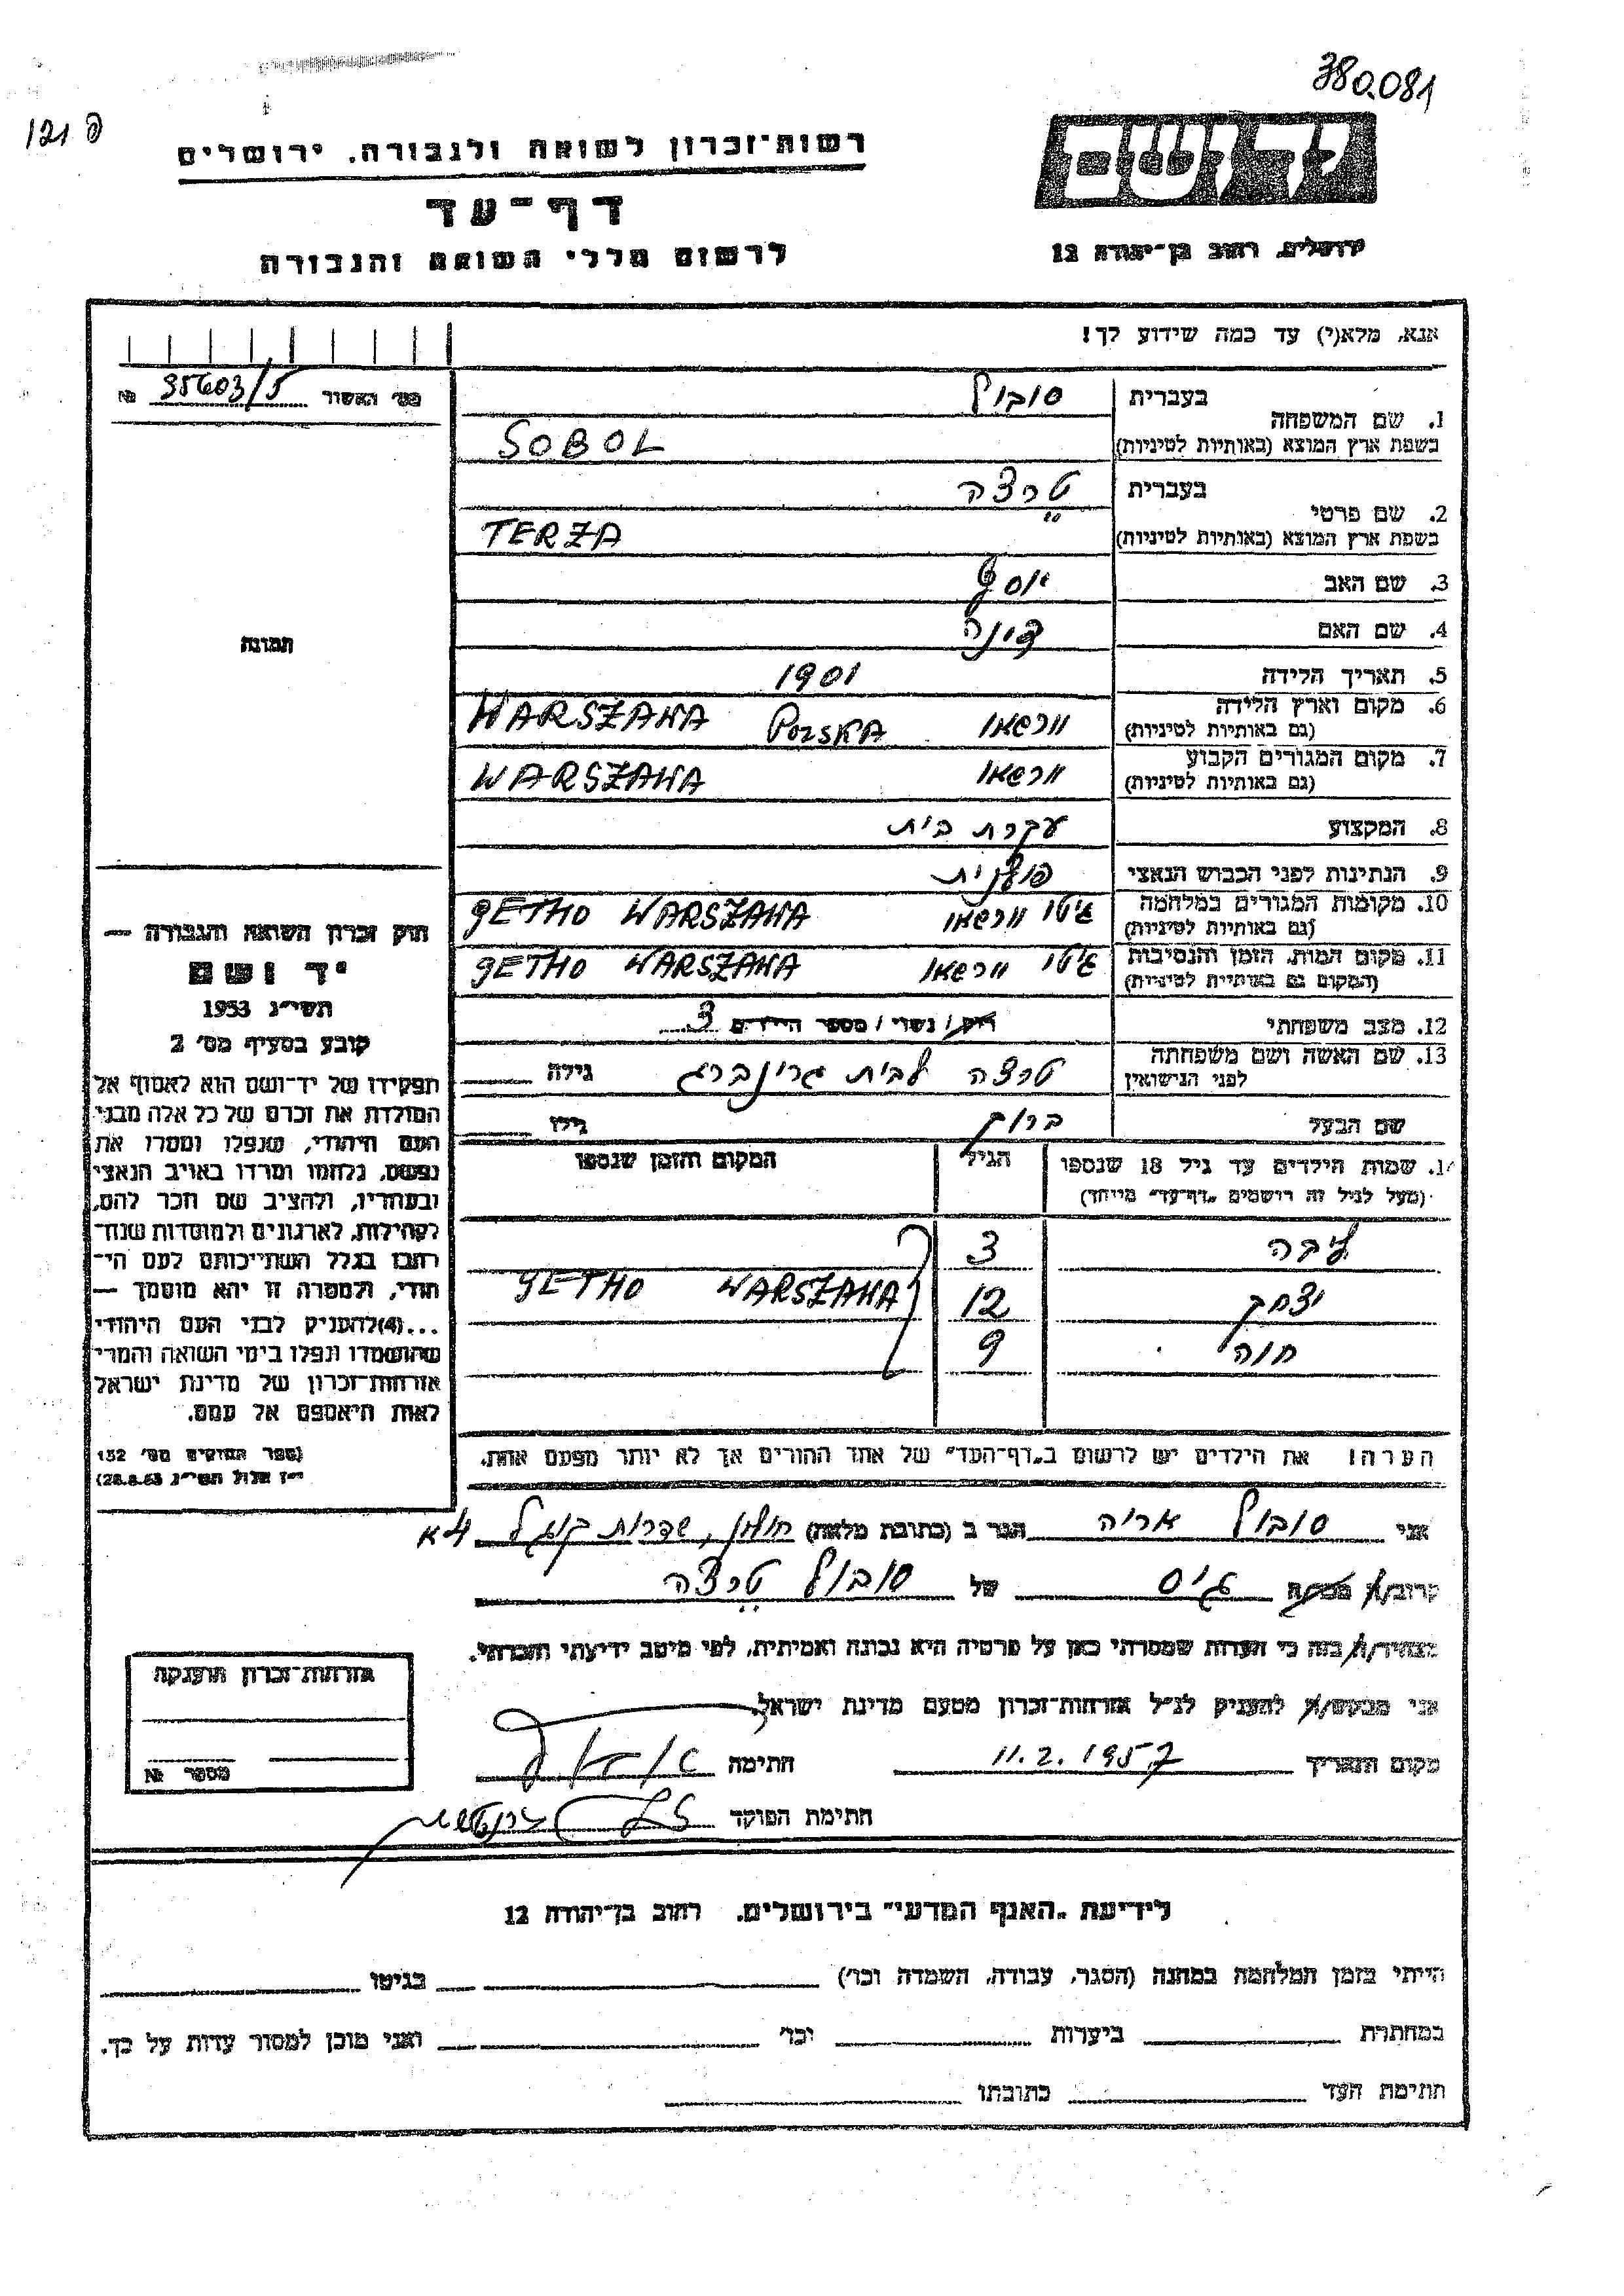 380.081
121 פ
יד ושם
ירושלים, רחוב בן־יהודה 12
רשות־זכרון לשואה ולגבורה, ירושלים
דף־עד
לרשום חללי השואה והגבורה
אנא, מלא(י) עד כמה שידוע לך!
מס׳ האשור 95603/5 №
1. שם המשפחה בעברית סובול
בשפת ארץ המוצא (באותיות לטיניות) SOBOL
2. שם פרטי בעברית טרצה
בשפת ארץ המוצא (באותיות לטיניות) TERZA
3. שם האב יוסף
4. שם האם
5. תאריך הלידה 1901
6. מקום וארץ הלידה (גם באותיות לטיניות) וורשאו POLSKA WARSZAWA
7. מקום המגורים הקבוע (גם באותיות לטיניות) וורשאו WARSZAWA
8. המקצוע עקרת בית
9. הנתינות לפני הכבוש הנאצי פולנית
10. מקומות המגורים במלחמה (גם באותיות לטיניות) גיטו וורשאו GETHO WARSZAWA
11. מקום המות, הזמן והנסיבות (המקום גם באותיות לטיניות) גיטו וורשאו GETHO WARSZAWA
12. מצב משפחתי רווק / נשוי / מספר הילדים 3
13. שם האשה ושם משפחתה לפני הנישואין טרצה לבית גרינברג גילה
שם הבעל ברוך גילו
14. שמות הילדים עד גיל 18 שנספו
(מעל לגיל זה רושמים „דף־עד״ מיוחד)
הגיל
המקום והזמן שנספו
ליבה 3
יצחק 12 GETHO WARSZAWA
חוה 9
הערה! את הילדים יש לרשום ב„דף־העד״ של אחד ההורים אך לא יותר מפעם אחת.
תמונה
חוק זכרון השואה והגבורה —
יד ושם
תשי״ג 1953
קובע בסעיף מס׳ 2
תפקידו של יד־ושם הוא לאסוף אל
המולדת את זכרם של כל אלה מבני
העם היהודי, שנפלו ומסרו את
נפשם, נלחמו ומרדו באויב הנאצי
ובעוזריו, ולהציב שם וזכר להם,
לקהילות, לארגונים ולמוסדות שנח־
רבו בגלל השתייכותם לעם הי־
הודי, ולמטרה זו יהא מוסמך —
...(4)להעניק לבני העם היהודי
שהושמדו ונפלו בימי השואה והמרי
אזרחות־זכרון של מדינת ישראל
לאות היאספם אל עמם.
(ספר החוקים מס׳ 132
י״ז אלול תשי״ג 28.8.53)
אני סובול אריה הגר ב (כתובת מלאה) חולון, שדרות קוגל 4א
קרוב/ה מכר/ה גיס של סובול טרצה
מצהיר/ה בזה כי העדות שמסרתי כאן על פרטיה היא נכונה ואמיתית, לפי מיטב ידיעתי והכרתי.
אני מבקש/ת להעניק לנ״ל אזרחות־זכרון מטעם מדינת ישראל.
מקום ותאריך 11.2.1957 חתימה
חתימת הפוקד
אזרחות־זכרון הוענקה
מספר №
לידיעת „האגף המדעי״ בירושלים, רחוב בן־יהודה 12
הייתי בזמן המלחמה במחנה (הסגר, עבודה, השמדה וכו׳) בגיטו
במחתרת ביערות וכו׳ ואני מוכן למסור עדות על כך.
חתימת העד כתובתו